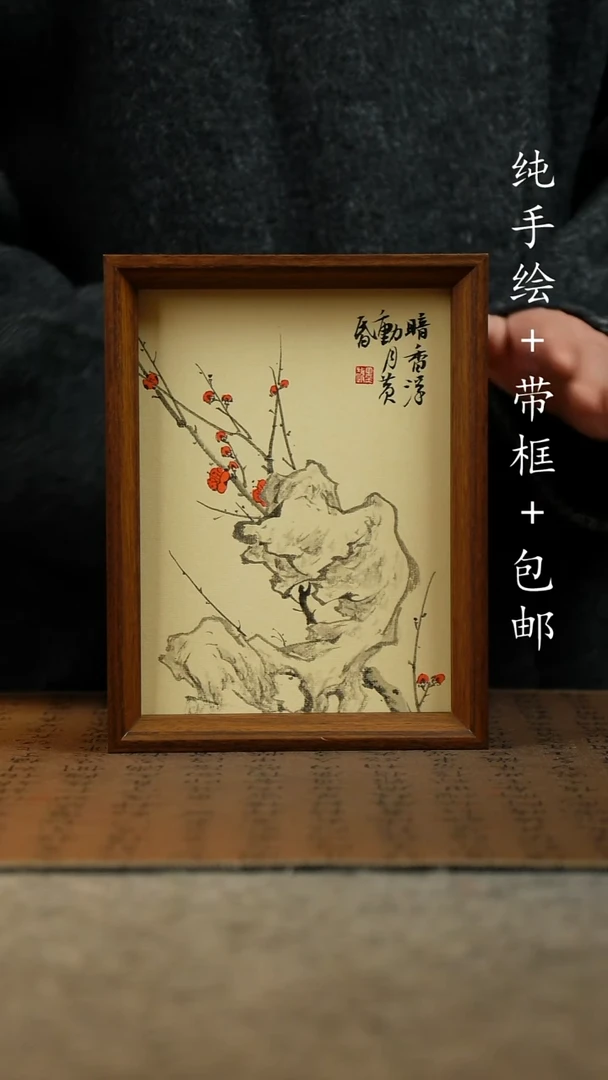 暗香浮
動月黄
昏
纯手绘+带框+包邮